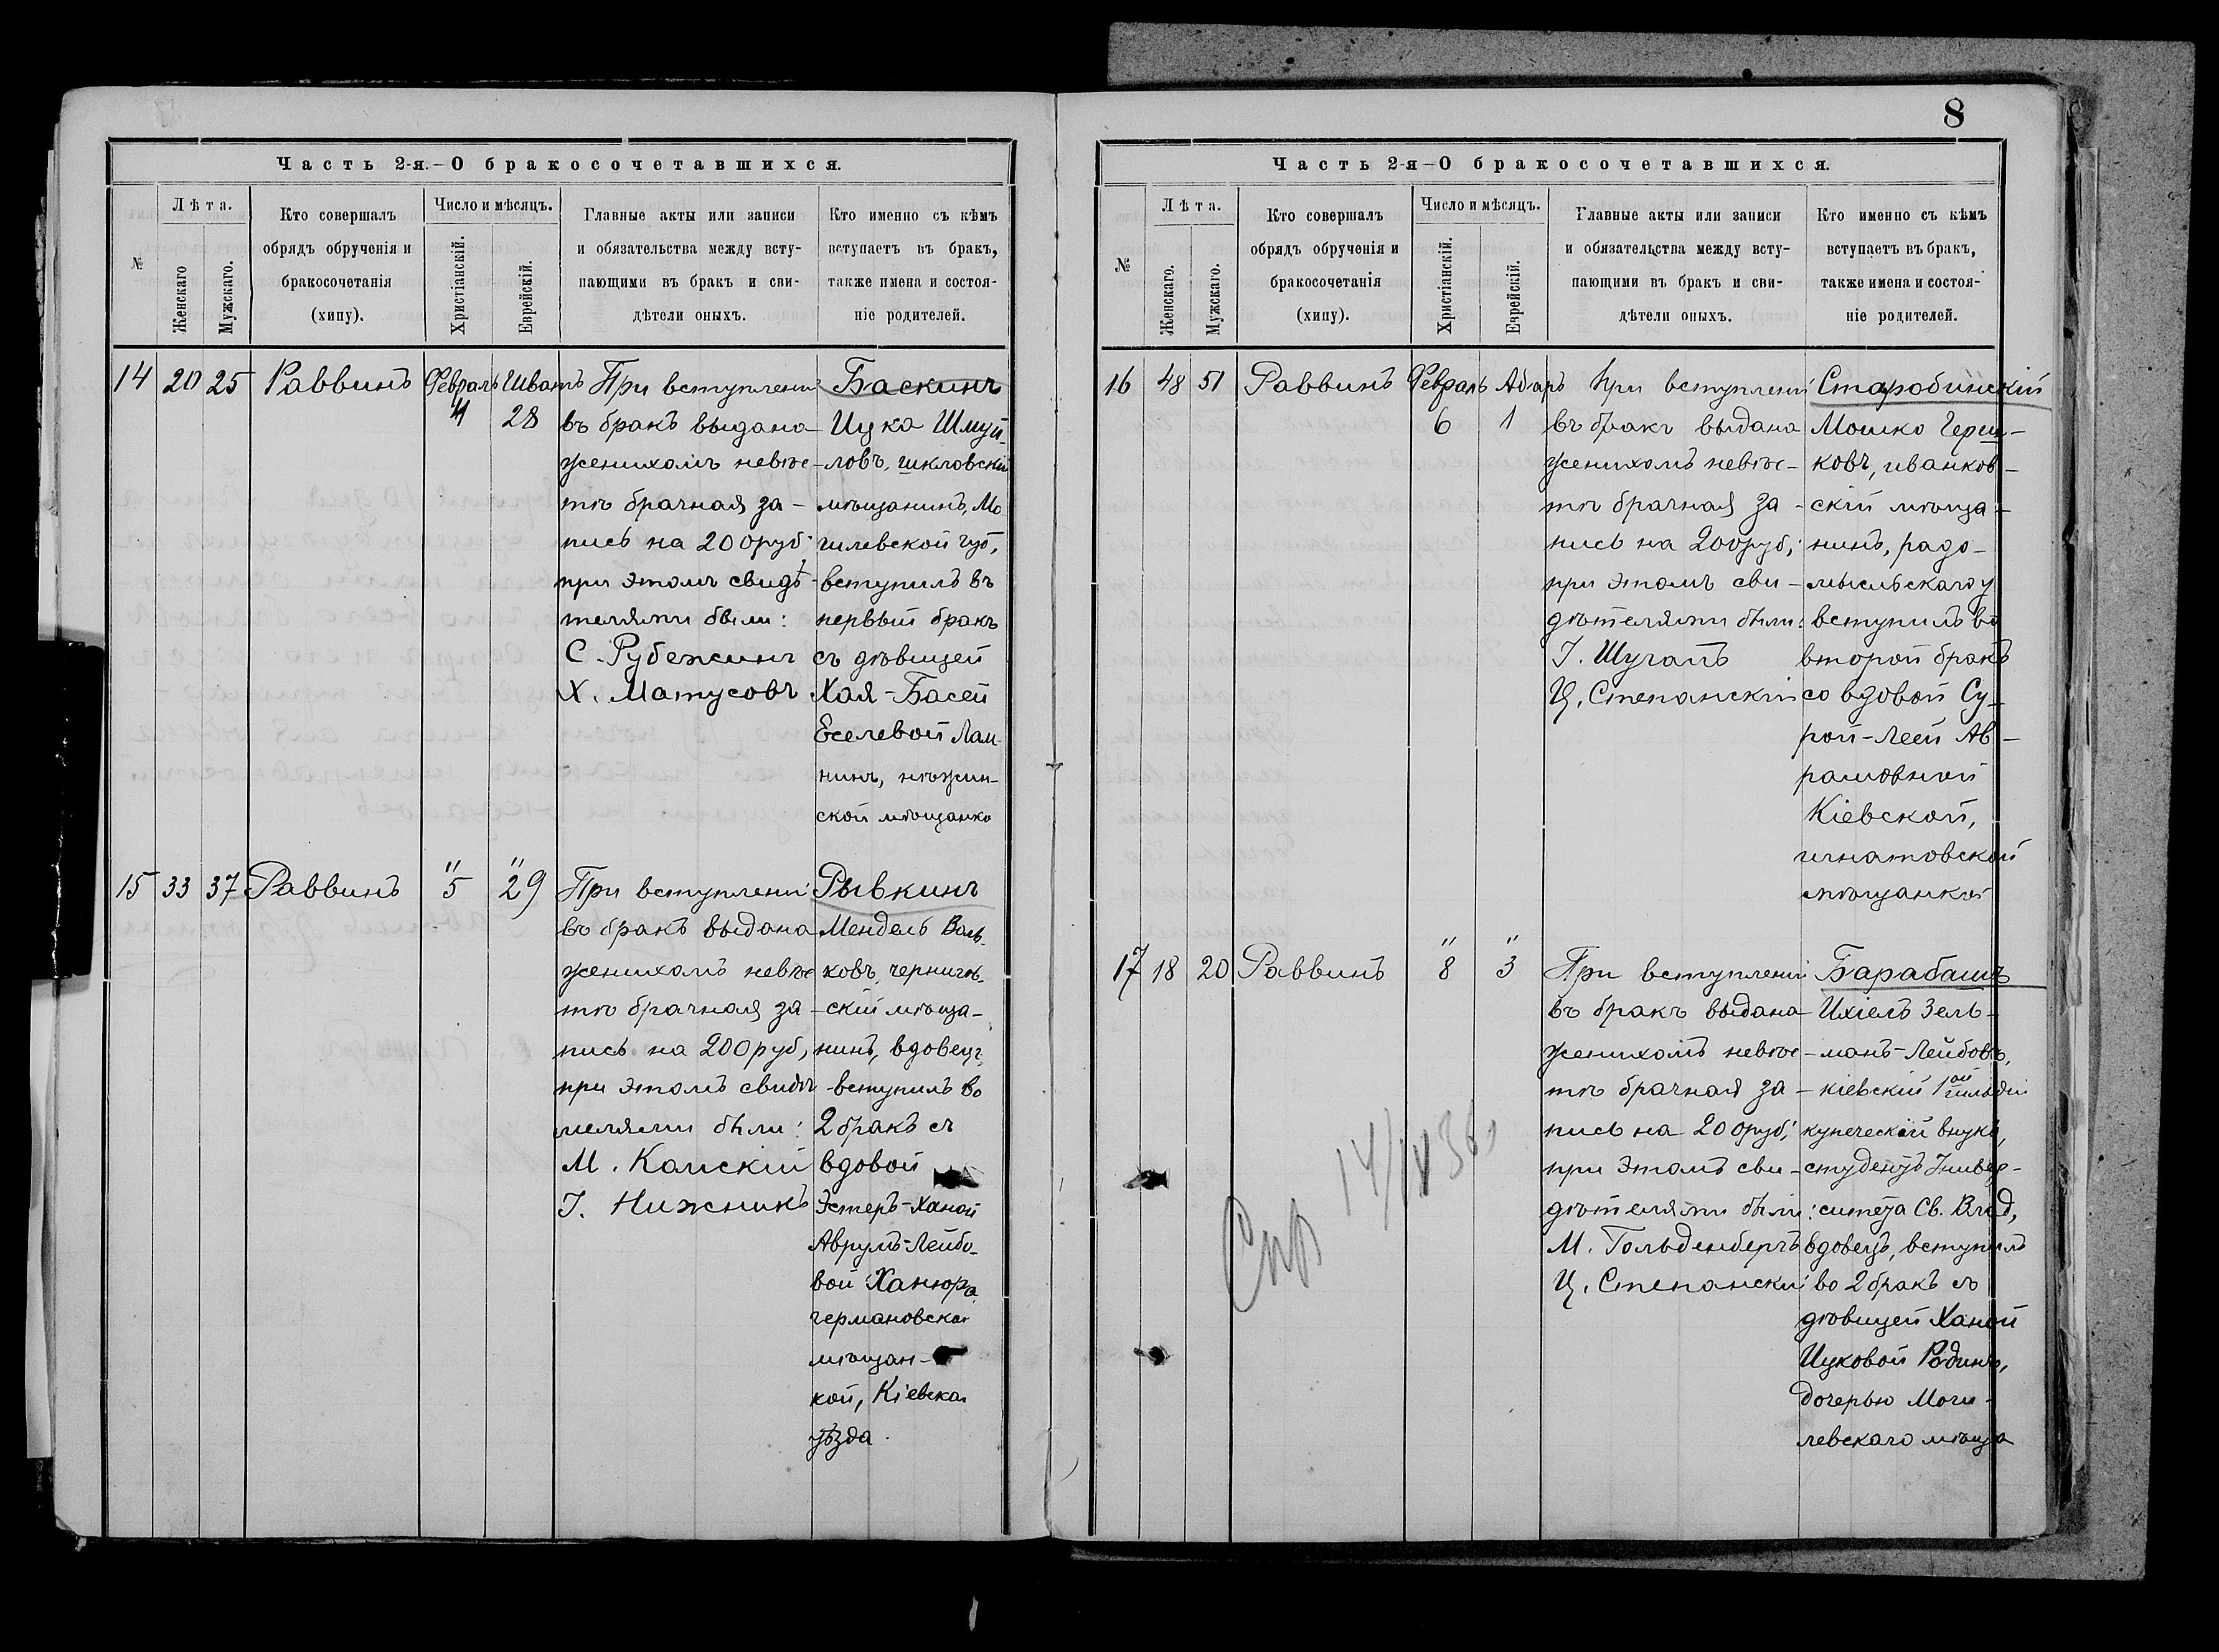 Часть 2-я.—О бракосочетавшихся.
№
Лѣта.
Женскаго
Мужскаго.
Кто совершалъ
обрядъ обрученія и
бракосочетанія
(хипу).
Число и мѣсяцъ.
Христіанскій.
Еврейскій.
Главные акты или записи
и обязательства между всту-
пающими въ бракъ и сви-
дѣтели оныхъ.
Кто именно съ кѣмъ
вступаетъ въ бракъ,
также имена и состоя-
ніе родителей.
14 20 25 Раввинъ Февраль Шватъ
4 28
При вступленіи
въ бракъ выдана
женихомъ невѣс-
тѣ брачная за-
пись на 200 руб;
при этомъ свидѣ-
телями были:
С. Рубежинъ
Х. Матусовъ
Баскинъ
Ицка Шмуй-
ловъ, шкловскій
мѣщанинъ, Мо
гилевской губ,
вступилъ въ
первый бракъ
съ дѣвицей
Хая-Басей
Еселевой Лам-
нинъ, нѣжин-
ской мѣщанко
15 33 37 Раввинъ " "
5 29
При вступлені
въ бракъ выдана
женихомъ невѣс
тѣ брачная за-
пись на 200 руб,
при этомъ свидѣ
телями были:
М. Каискій
І. Нижникъ
Рывкинъ
Мендель Воль-
ковъ, чернигов-
скій мѣща-
нинъ, вдовецъ,
вступилъ во
2 бракъ съ
вдовой
Эстеръ-Ханой
Аврумъ-Лейбо-
вой Ханюра
германовской
мѣщан-
кой, Кіевска
уѣзда.
8
Часть 2-я—О бракосочетавшихся.
№
Лѣта.
Женскаго.
Мужскаго.
Кто совершалъ
обрядъ обрученія и
бракосочетанія
(хипу).
Число и мѣсяцъ.
Христіанскій.
Еврейскій.
Главные акты или записи
и обязательства между всту-
пающими въ бракъ и сви-
дѣтели оныхъ.
Кто именно съ кѣмъ
вступаетъ въ бракъ,
также имена и состоя-
ніе родителей.
16 48 51 Раввинъ Февраль Адаръ
6 1
При вступлені
въ бракъ выдана
женихомъ невѣс-
тѣ брачная за-
пись на 200 руб;
при этомъ сви-
дѣтелями были:
І. Шучапъ
Ц. Степанскій
Старобинскій
Мошко Герш-
ковъ, иванков-
скій мѣща-
нинъ, радо-
мысльскаго у
вступилъ во
второй бракъ
со вдовой Су-
рой-Леей Ав-
рамовной
Кіевской,
игнатовской
мѣщанкой
17 18 20 Раввинъ " "
8 3
При вступлені
въ бракъ выдана
женихомъ невѣс-
тѣ брачная за-
пись на 200 руб;
при этомъ сви-
дѣтелями были:
М. Гольденберъ
Ц. Степански
Барабашъ
Ихіель Зель-
манъ-Лейбовъ,
кіевскій 1ой гильдіи
купеческій внукъ,
студентъ Универ-
ситета Св. Влад,
вдовецъ, вступилъ
во 2 бракъ съ
дѣвицей Ханой
Ицковой Родинъ,
дочерью Моги-
левскаго мѣща
Спр